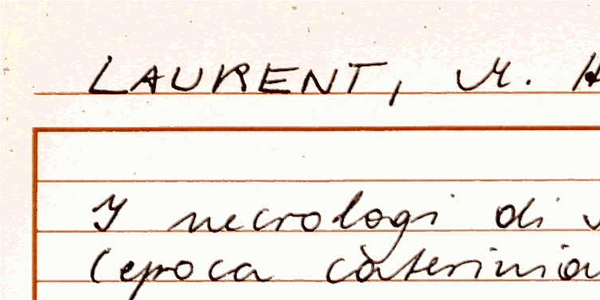 LAURENT, M. H
I necrologi di
(epoca caterinia